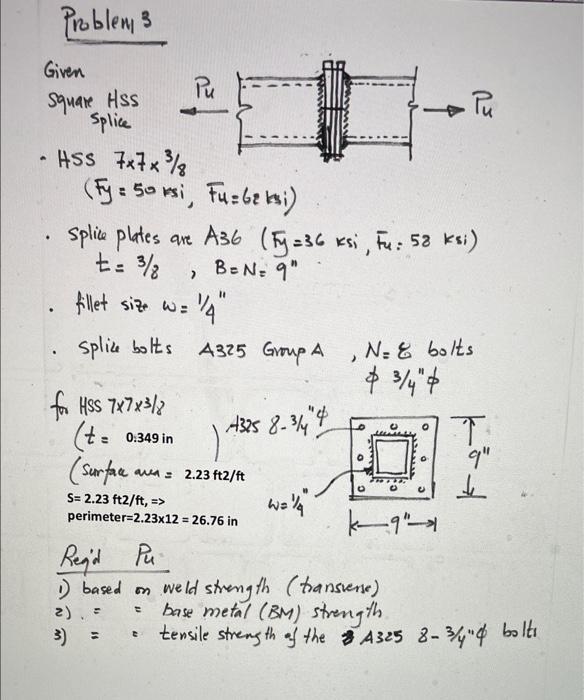 Problem 3
Given
Square HSS
Splice
Pu
Pu
• HSS 7x7x3/8
(Fy = 50 ksi, Fu=62 ksi)
• Splice plates are A36 (Fy=36 ksi, Fu= 58 ksi)
t= 3/8 , B=N= 9"
• fillet size w= 1/4"
• Splice bolts A325 Group A , N= 8 bolts
ϕ 3/4"ϕ
for HSS 7x7x3/8
(t= 0.349 in )
(Surface area = 2.23 ft2/ft
S= 2.23 ft2/ft, =>
perimeter=2.23x12 = 26.76 in
A325 8-3/4"ϕ
w=1/4"
9"
9"
Req'd Pu
1) based on weld strength (transverse)
2) . = = base metal (BM) strength
3) = = tensile strength of the A325 8-3/4"ϕ bolts